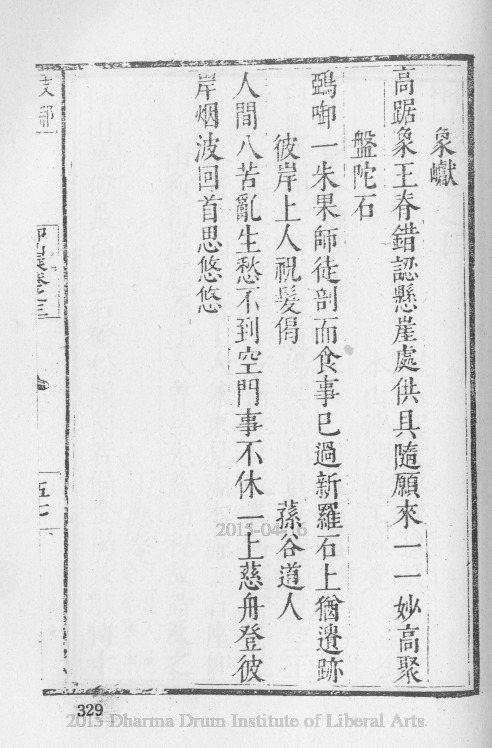 象巘
高踞象王脊錯認懸崖處供具隨願來一一妙高聚
盤陀石
鵶啣一朱果師徒剖而食事已過新羅石上猶遺跡
彼岸上人祝髮偈
蓀谷道人
人間八苦亂生愁不到空門事不休一上慈舟登彼
岸烟波回首思悠悠
五七
2015-04-16
329
2015 Dharma Drum Institute of Liberal Arts